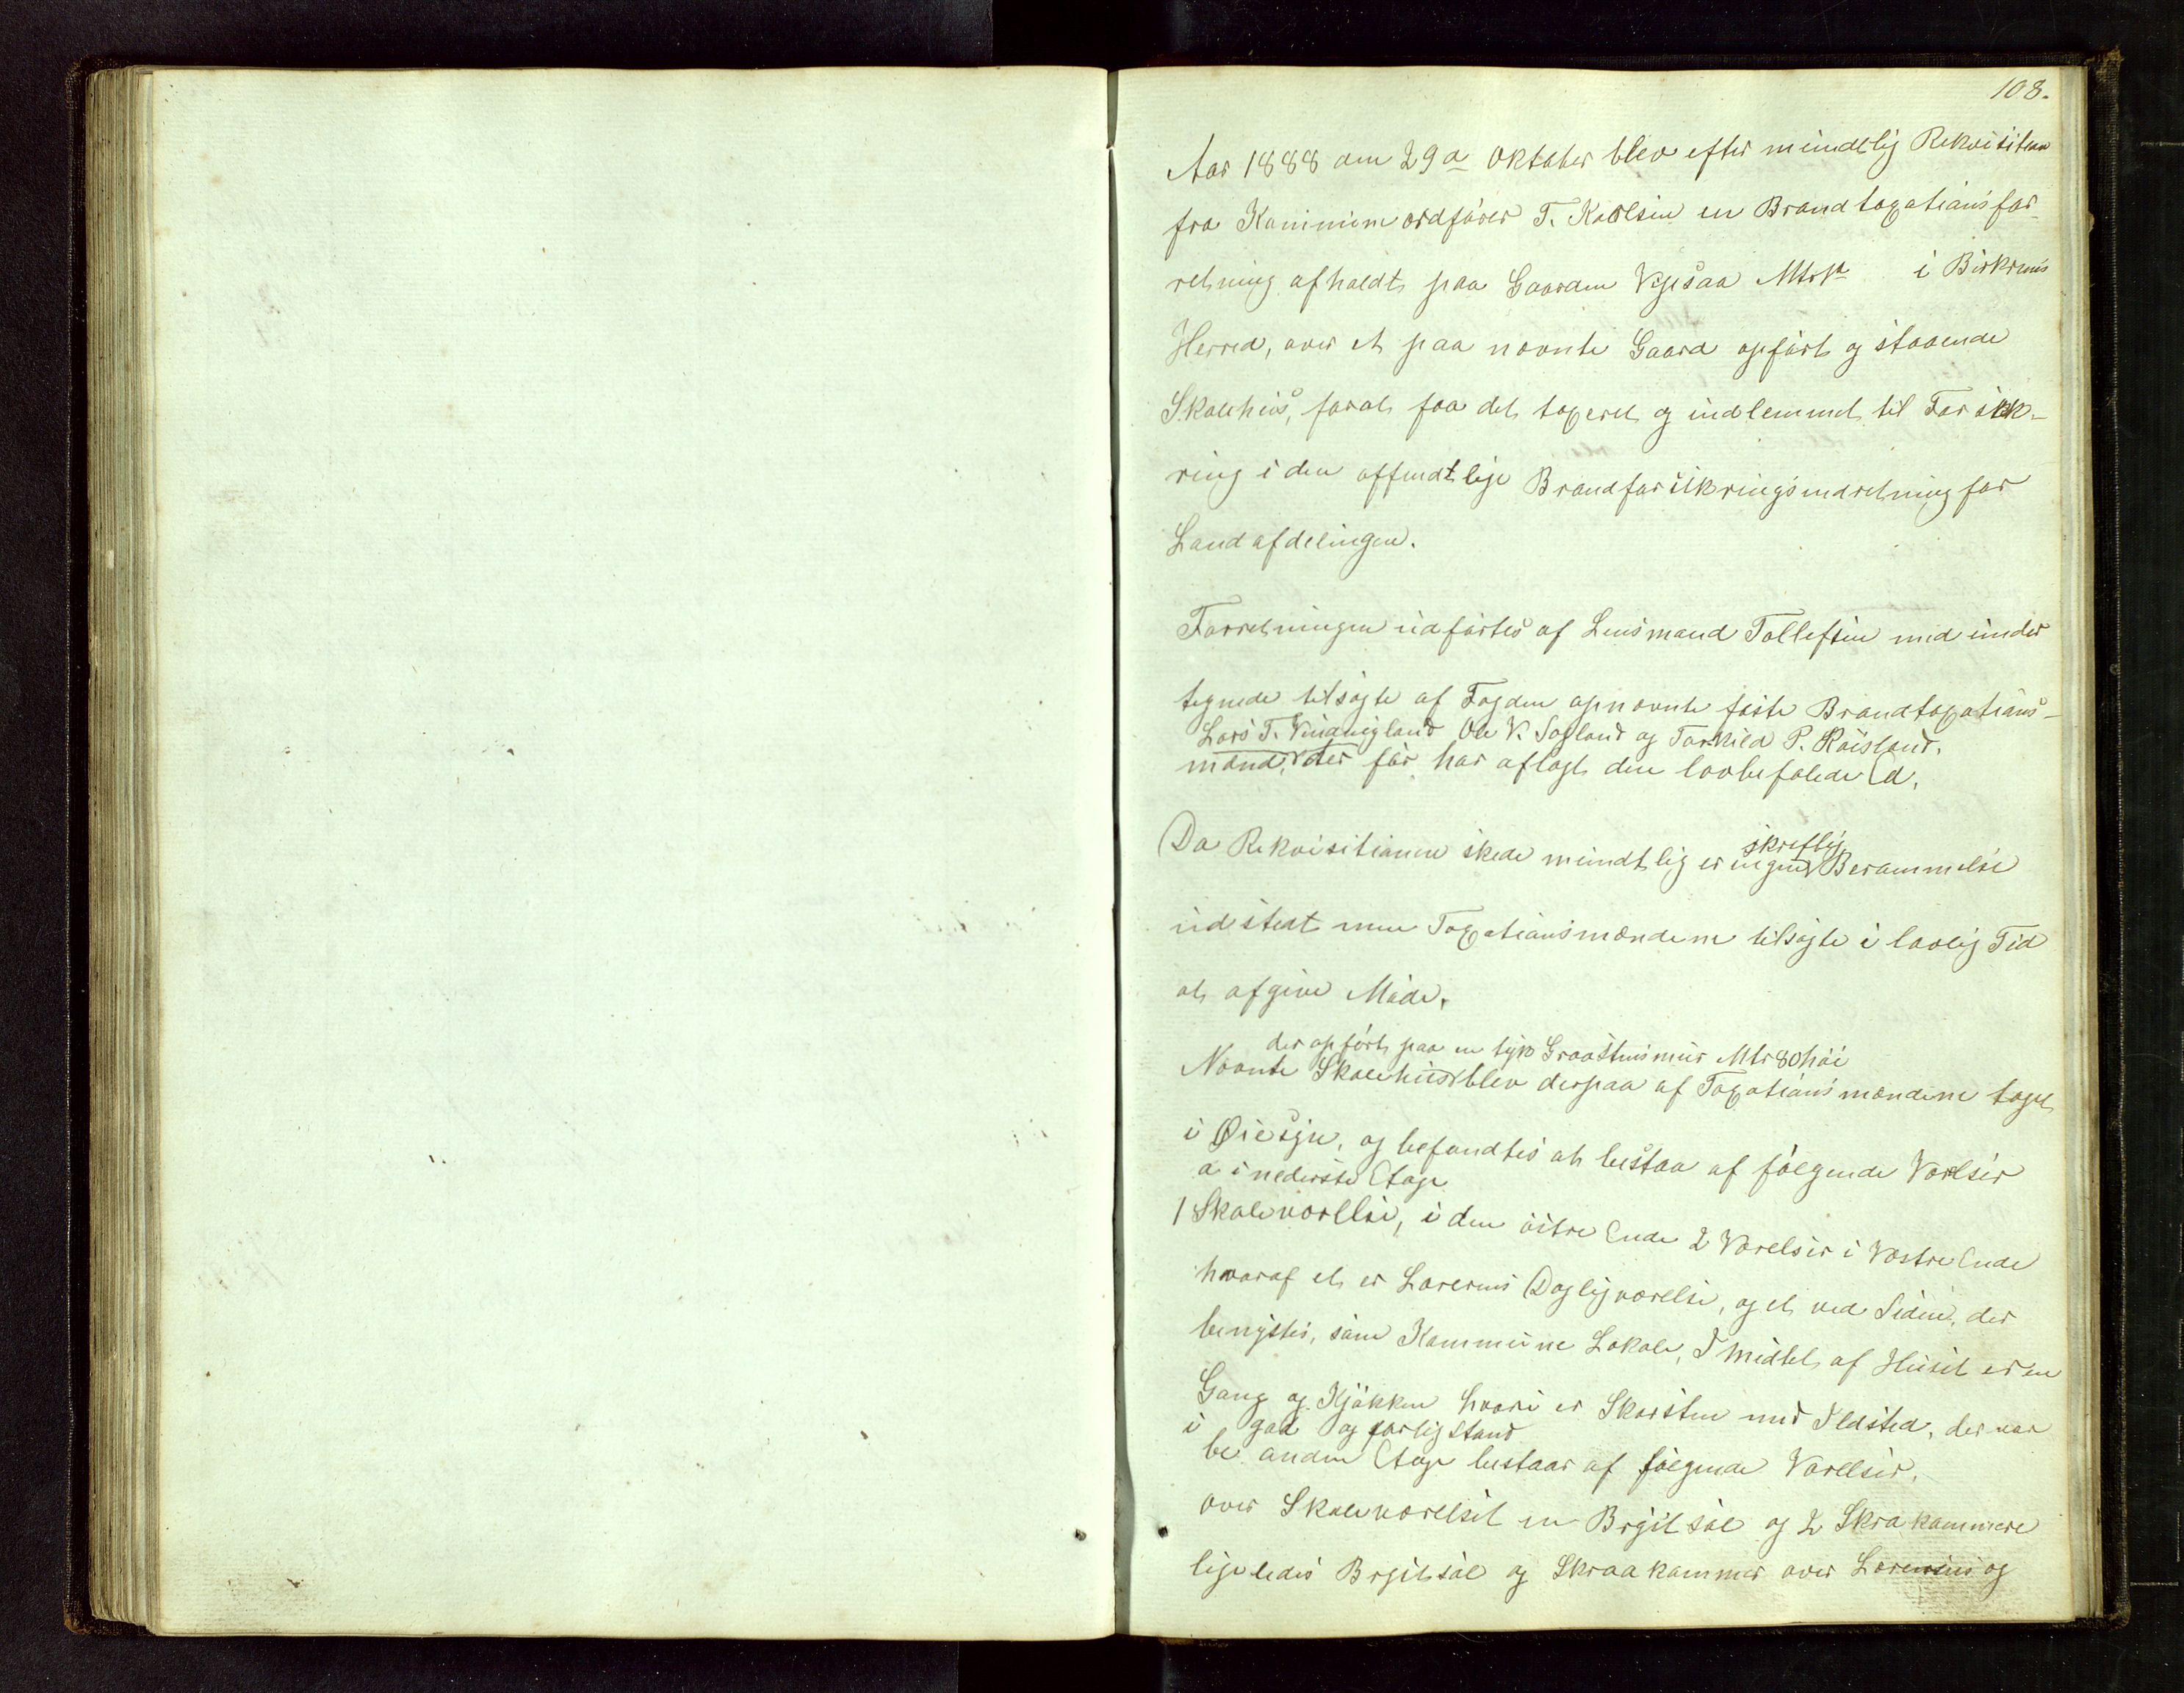 108.
Aar 1888 den 29de Oktober blev efter mundtlig Rekvisition
fra Kommuneordfører T. Karlsen en Brandtaxationsfor-
retning afholdt paa Gaarden Mtr№ i Birkrems
Herred, over et paa nævnte Gaard opført og staaende
Skolehus, forat faa det taxeret og indlemmet til Forsik-
ring i den offendtlige Brandforsikringsindretning for
Landafdelingen.
Forretningen udførtes af Lensmand Tollefsen med under
tegnede tilsagte af Fogden opnævnte faste Brandtaxations-
Lars T. Vinningland Ole V. Sagland og Torkild P. Røisland.
mænd, der før har aflagt den lovbefalede Ed,
Da Rekvisitionen skede mundtlig er ingen skreftlig Berammelse
udstedt men Taxationsmændene tilsagte i lovlig Tid
at afgive Møde.
der opført paa en tyk Graastensmur Mtr 80 høi
Nævnte Skolehus blev derpaa af Taxationsmændene taget
i Øiesyn, og befandtes at bestaa af følgende Værelser
a i nederste Etage
1 Skoleværelse, i den østre Ende 2 Værelser i Vestre Ende
hvoraf et er Lærerens Dagligværelse, og et ved Siden, der
benyttes, som Kommune Lokale, I Midtet af Huset er en
Gang og Kjøkken hvori er Skorsten med Ildsted, der var
i god og forlig Stand
be anden Etage bestaar af følgende Værelser,
over Skoleværelset en Brgitsal og 2 Skra kammere
ligeledes Brgitsal og Skraa kammer over Lærerens og